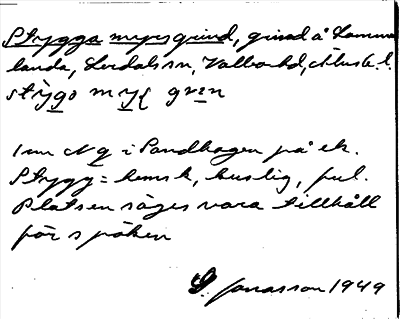 Stygga myrsgrind, grind å Lamma
landa, Lerdalsrn, Valbo hd, Älvsb. l.
stỳgo my̱ʃ gren
1 cm N g i Sandhagen på ek.
Stygg = hemsk, kuslig, ful.
Platsen säges vara tillhåll
för spöken
S. Jonasson 1949